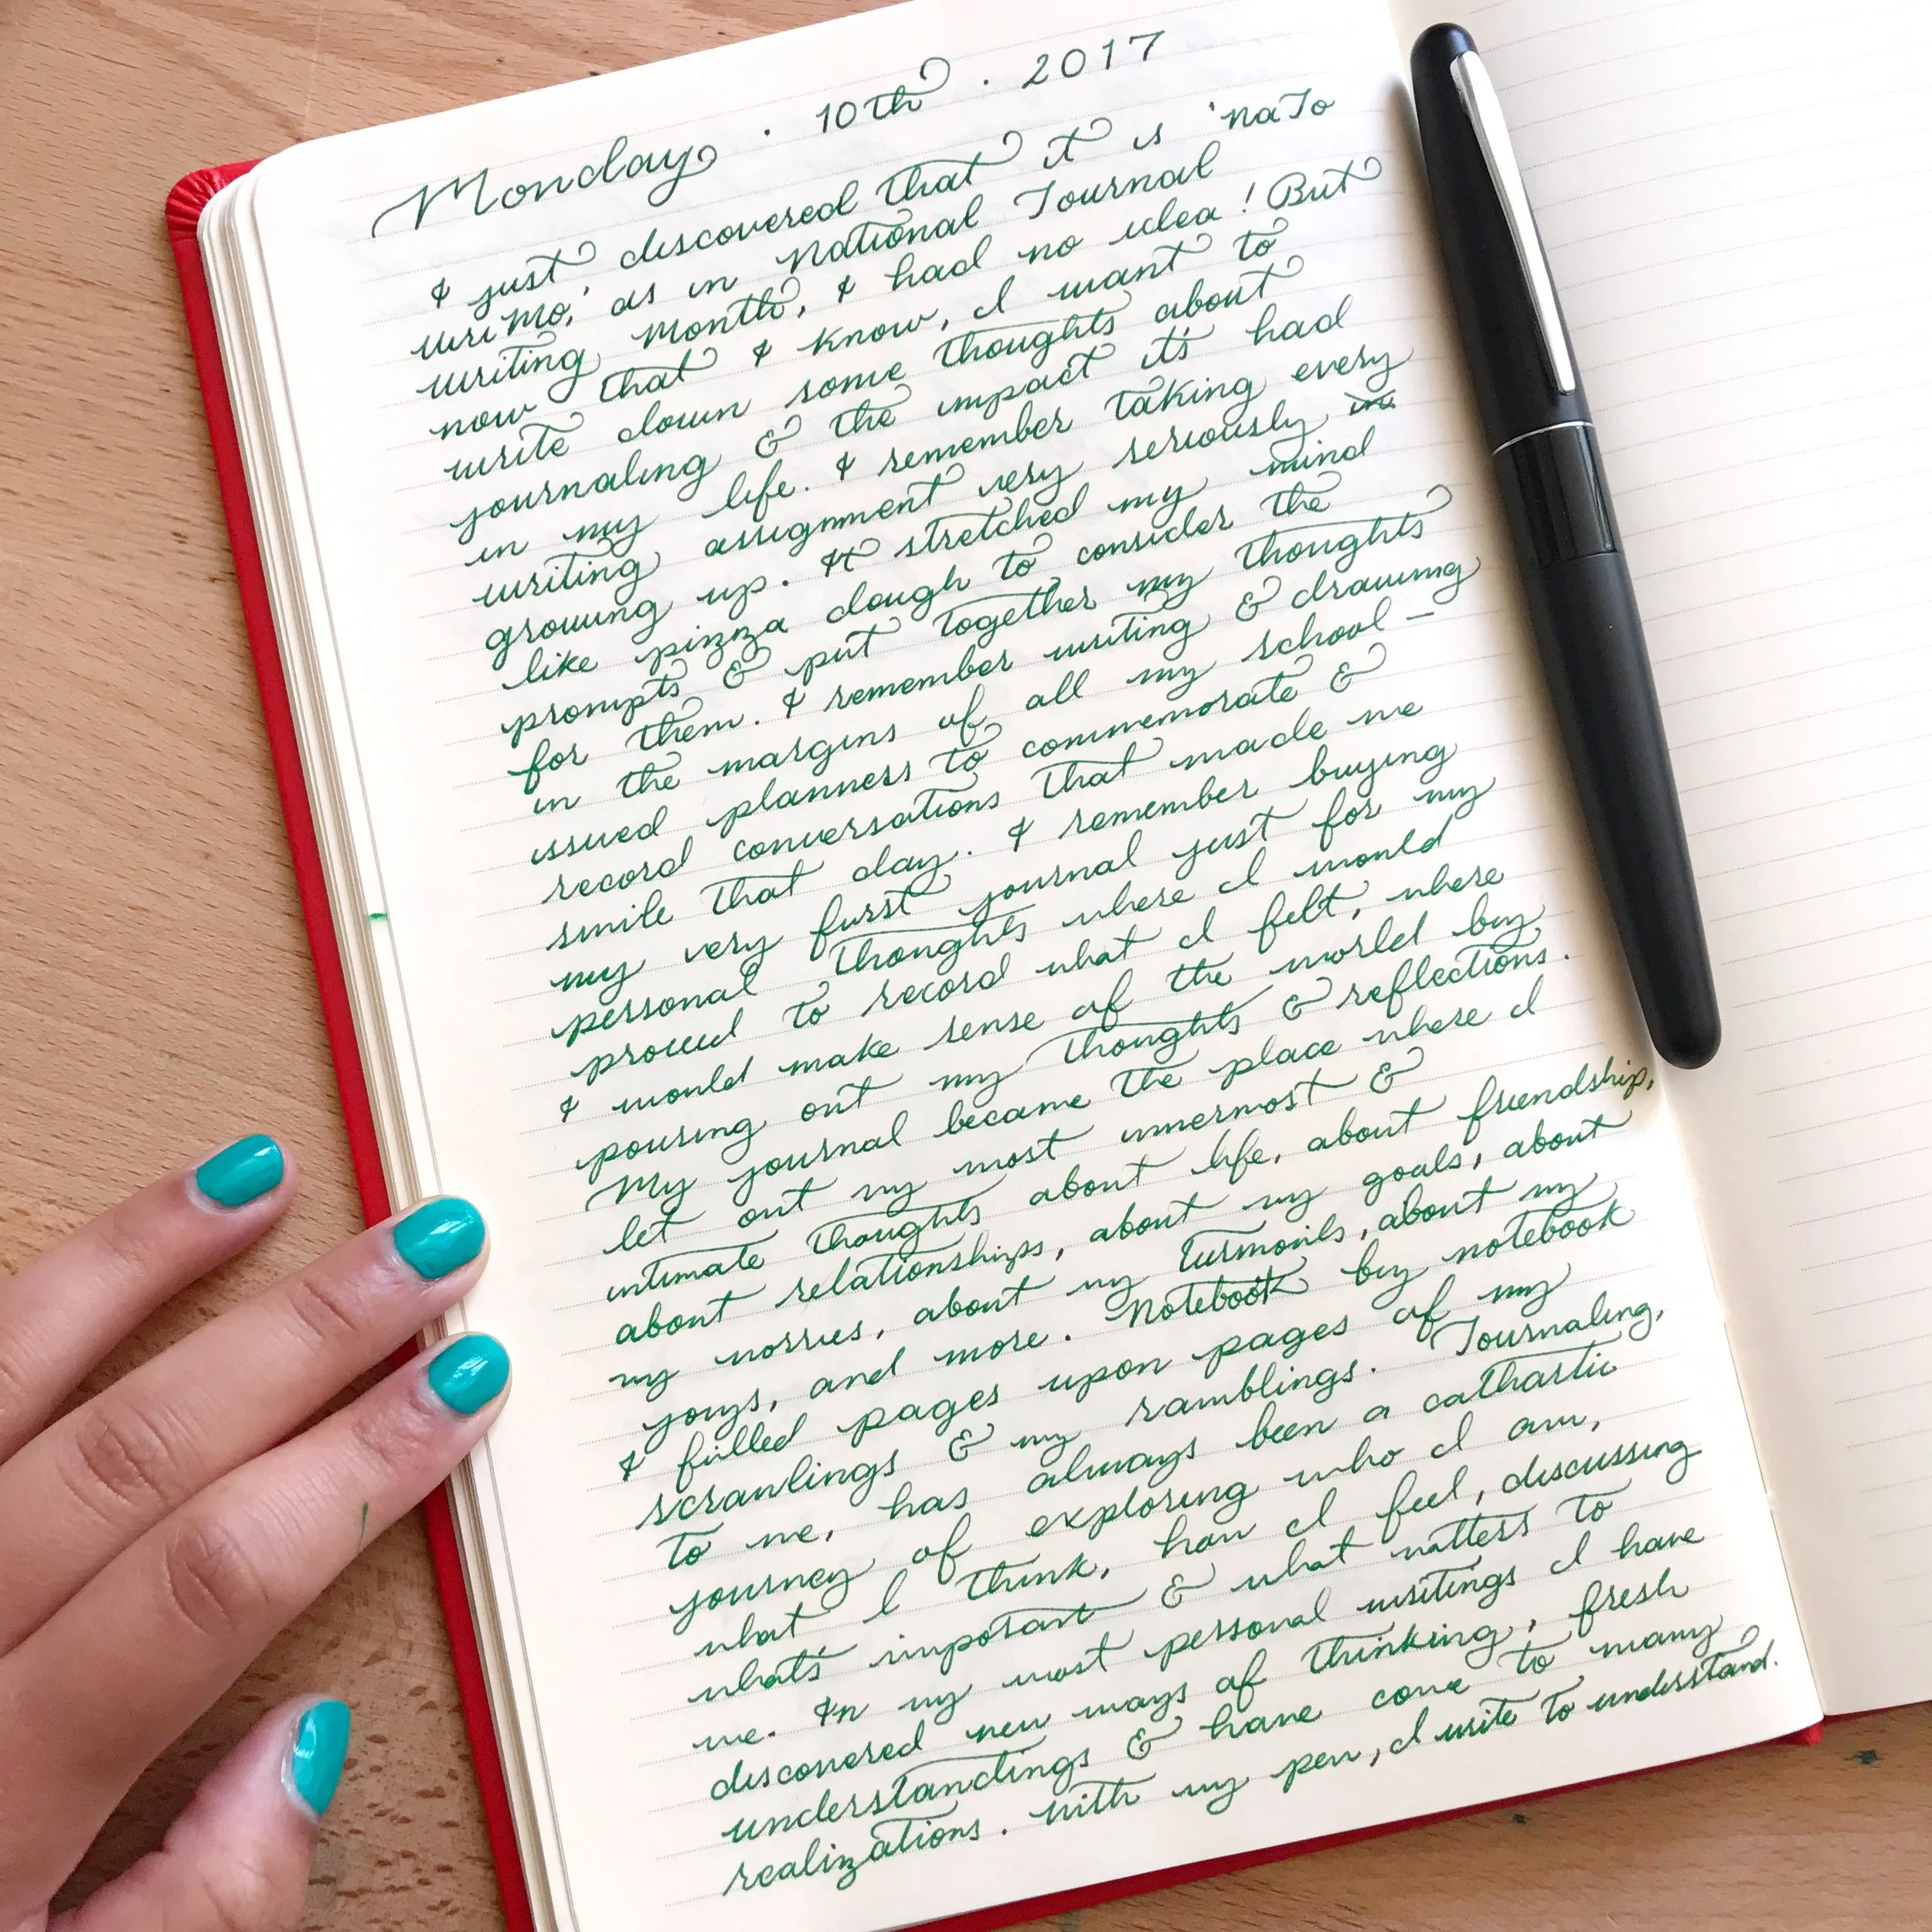 Monday . 10th . 2017
I just discovered that it is 'NaJo
WriMo,' as in National Journal
Writing Month, I had no idea! But
now that I know, I want to
write down some thoughts about
journaling & the impact it's had
in my life. I remember taking every
writing assignment very seriously in
growing up. It stretched my mind
like pizza dough to consider the
prompts & put together my thoughts
for them. I remember writing & drawing
in the margins of all my school-
issued planners to commemorate &
record conversations that made me
smile that day. I remember buying
my very first journal just for my
personal thoughts where I would
proceed to record what I felt, where
I would make sense of the world by
pouring out my thoughts & reflections.
My journal became the place where I
let out my most innermost &
intimate thoughts about life, about friendship,
about relationships, about my goals, about
my worries, about my turmoils, about my
joys, and more. Notebook by notebook
I filled pages upon pages of my
scrawlings & my ramblings. Journaling,
to me, has always been a cathartic
journey of exploring who I am,
what I think, how I feel, discussing
what's important & what matters to
me. In my most personal writings I have
discovered new ways of thinking, fresh
understandings & have come to many
realizations. With my pen, I write to understand.